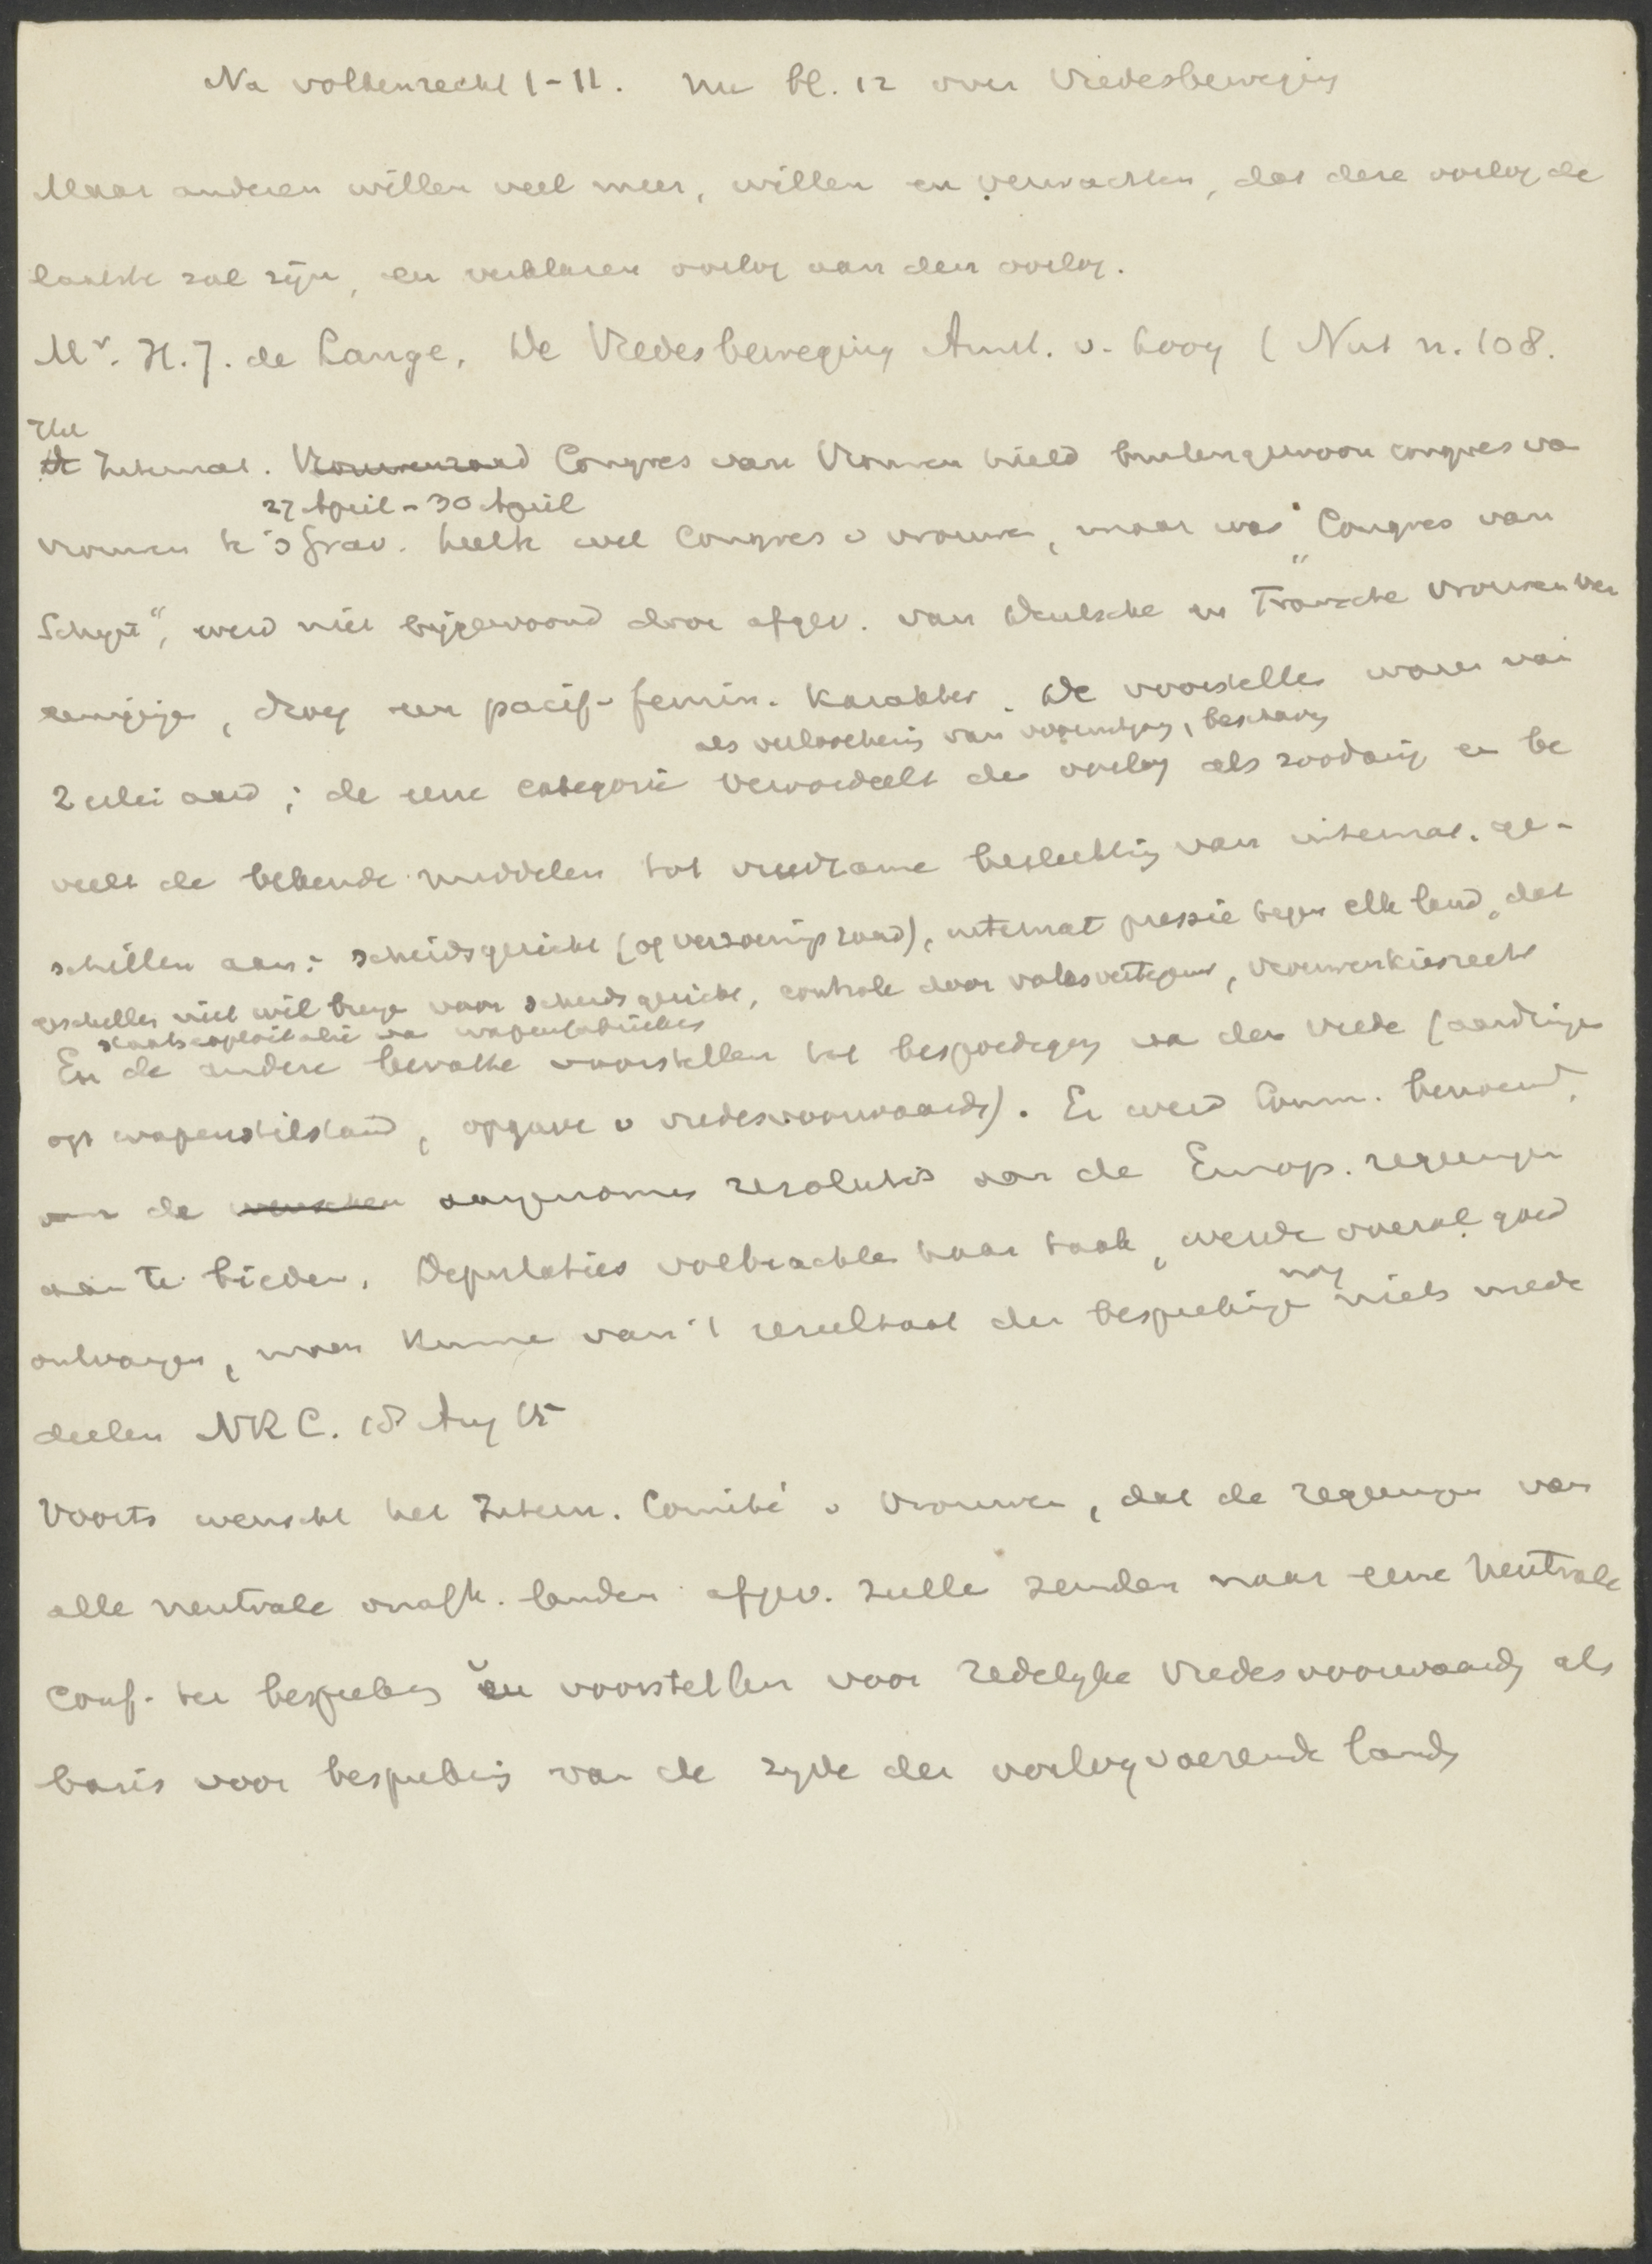 Na volkenrecht 1-11. Nu bl. 12 over Vredesbeweging
Maar anderen willen veel meer, willen en verwachten, dat deze oorlog de
laatste zal zijn, en verklaren oorlog aan den oorlog.
Mr. H. J. de Lange, De Vredesbeweging Amst. v. Looy ( Nut n. 108.
Het
de Internat. Vrouwenraad Congres van Vrouwen hield buitengewoon congres va
27 April - 30 April
vrouwen te 's Grav. heette wel Congres v vrouwen, maar was "Congres van
Schrijvers", werd niet bijgewoond door afgev. van Duitsche en Fransche vrouwenver
eenigingen, droeg een pacif-femin. karakter. De voorstellen waren van
als verloochening van vooruitgang, beschaving
2erlei aard; de eene categorie veroordeelt den oorlog als zoodanig en be
veelt de bekende middelen tot vreedzame beslechting van internat. ge-
schillen aan: scheidsgericht (of verzoeningsraad), internat pressie tegen elk land, dat
geschillen niet wil brengen voor scheidsgericht, controle door volksvertegenw, vrouwenkiesrecht
staatsexploitatie va wapenfabrieken
En de andere bevatte voorstellen tot bespoediging va den vrede (aandringen
op wapenstilstand, opgave v vredesvoorwaarde). Er werd Comm. benoemd,
om de wenschen aangenomen resoluties aan de Europ. regeeringen
aan te bieden. Deputaties volbrachten haar taak, werden overal goed
nog
ontvangen, maar kunnen van 't resultaat der besprekingen niets mede
deelen NRC. 18 Aug 15
Voorts wenscht het Intern. Comité v Vrouwen, dat de regeeringen van
alle neutrale onafh. landen afgev. zullen zenden naar eene Neutrale
Conf. ter bespreking en voorstellen voor redelijke vredesvoorwaarden als
basis voor bespreking van de zijde der oorlogvoerende landen